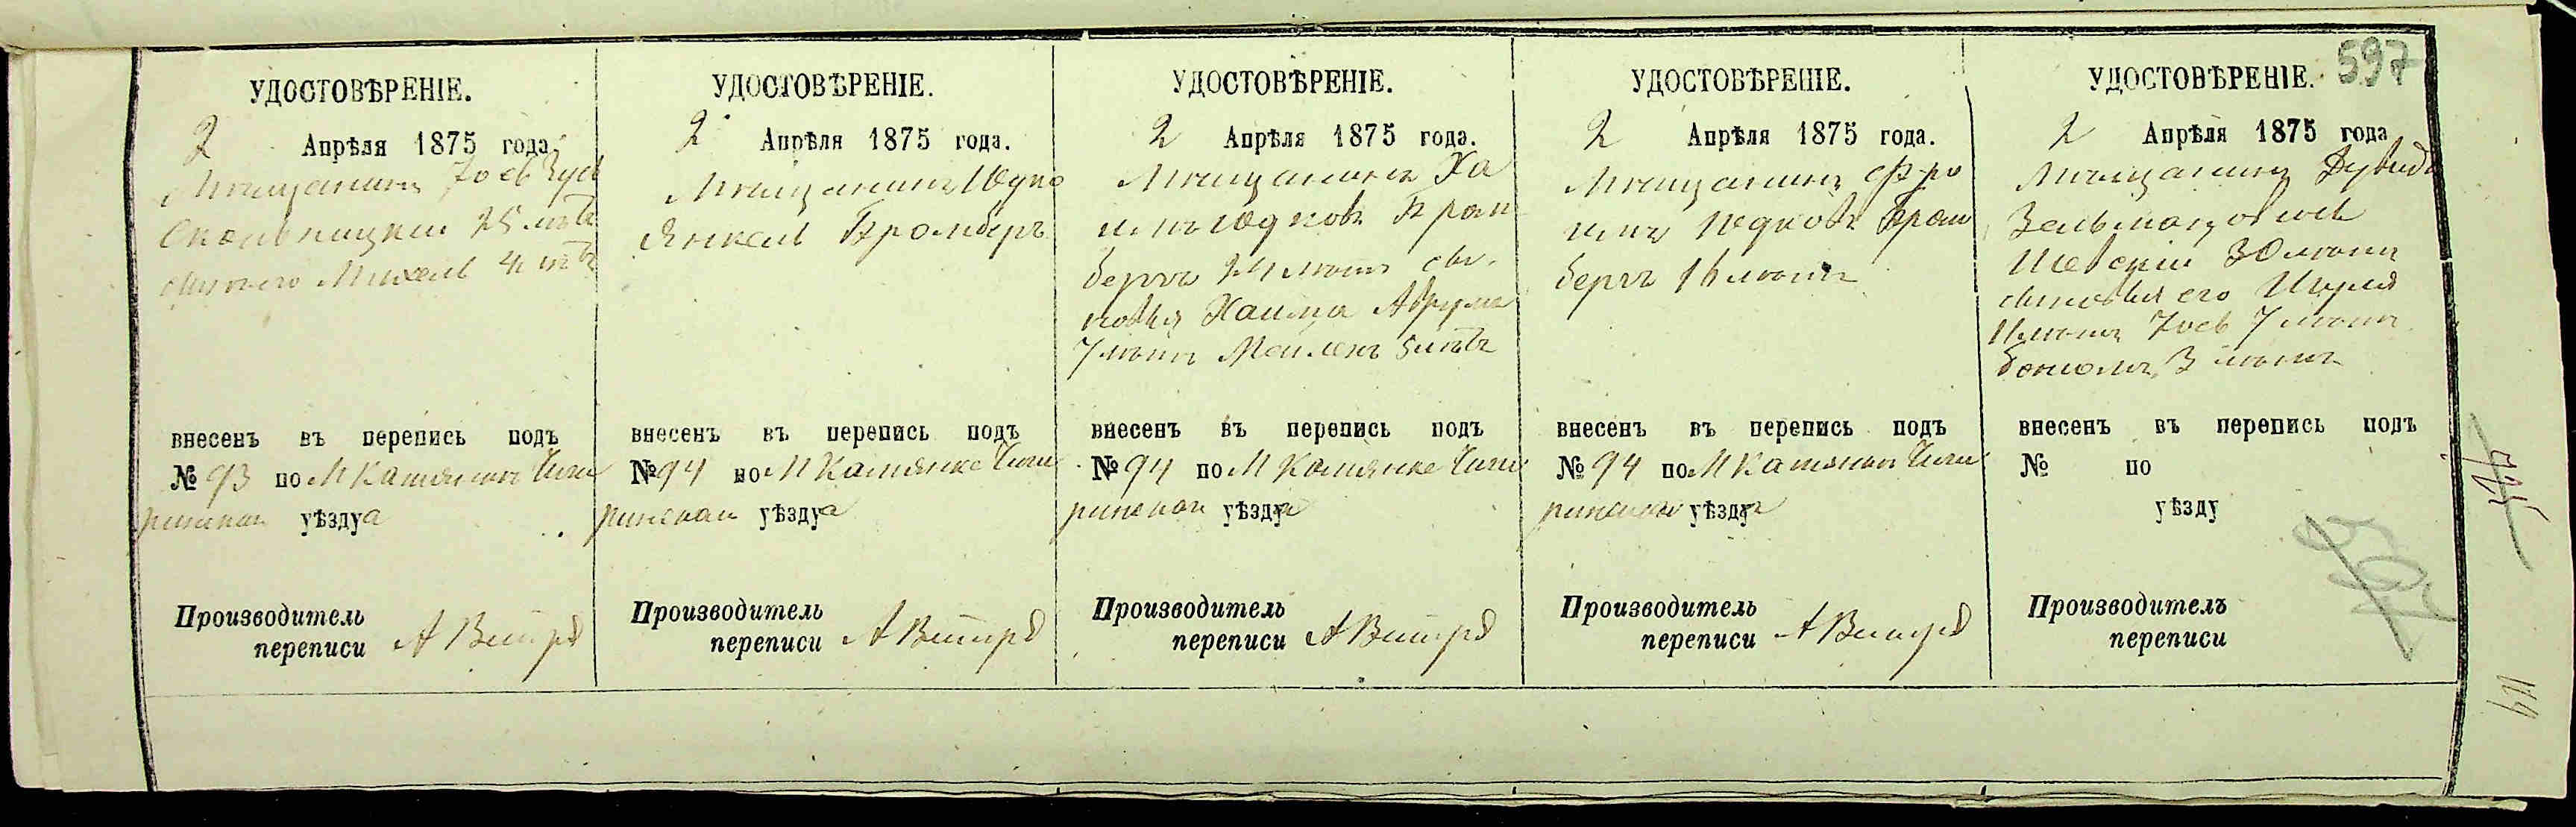 597
УДОСТОВѢРЕНІЕ.
2 Апрѣля 1875 года.
Мѣщанинъ Іось Зусь
25 лѣтъ
Михель 4 лѣтъ
внесенъ въ перепись подъ
№ 93 по М Катянки Чиги
ринскаи уѣзду а
Производитель
переписи А
УДОСТОВѢРЕНІЕ.
2 Апрѣля 1875 года.
Мѣщанинъ Юдко
Янкель Бромберъ
внесенъ въ перепись подъ
№ 94 по М Камянке Чиги
ринскаи уѣзду а
Производитель
переписи А
УДОСТОВѢРЕНІЕ.
2 Апрѣля 1875 года.
Мѣщанинъ Ха
имъ Юдковъ Бром
бергъ лѣтъ сы.
новья Хаима Аврумъ
7 лѣтъ 5 лѣтъ
внесенъ въ перепись подъ
№ 94 по М Камянке Чиги
ринскаи уѣзду
Производитель
переписи А
УДОСТОВѢРЕНІЕ.
2 Апрѣля 1875 года.
Мѣщанинъ Фро
имъ Юдковъ Бром
бергъ 16 лѣтъ
внесенъ въ перепись подъ
№ 94 по М Камянки Чиги
ринскаи уѣзду
Производитель
переписи А
УДОСТОВѢРЕНІЕ.
2 Апрѣля 1875 года
Мѣщанинъ Дувидъ
Зельмановъ
30 лѣтъ
сыновья его
11 лѣтъ Іось 7 лѣтъ
3 лѣтъ
внесенъ въ перепись подъ
№ по
уѣзду
Производитель
переписи